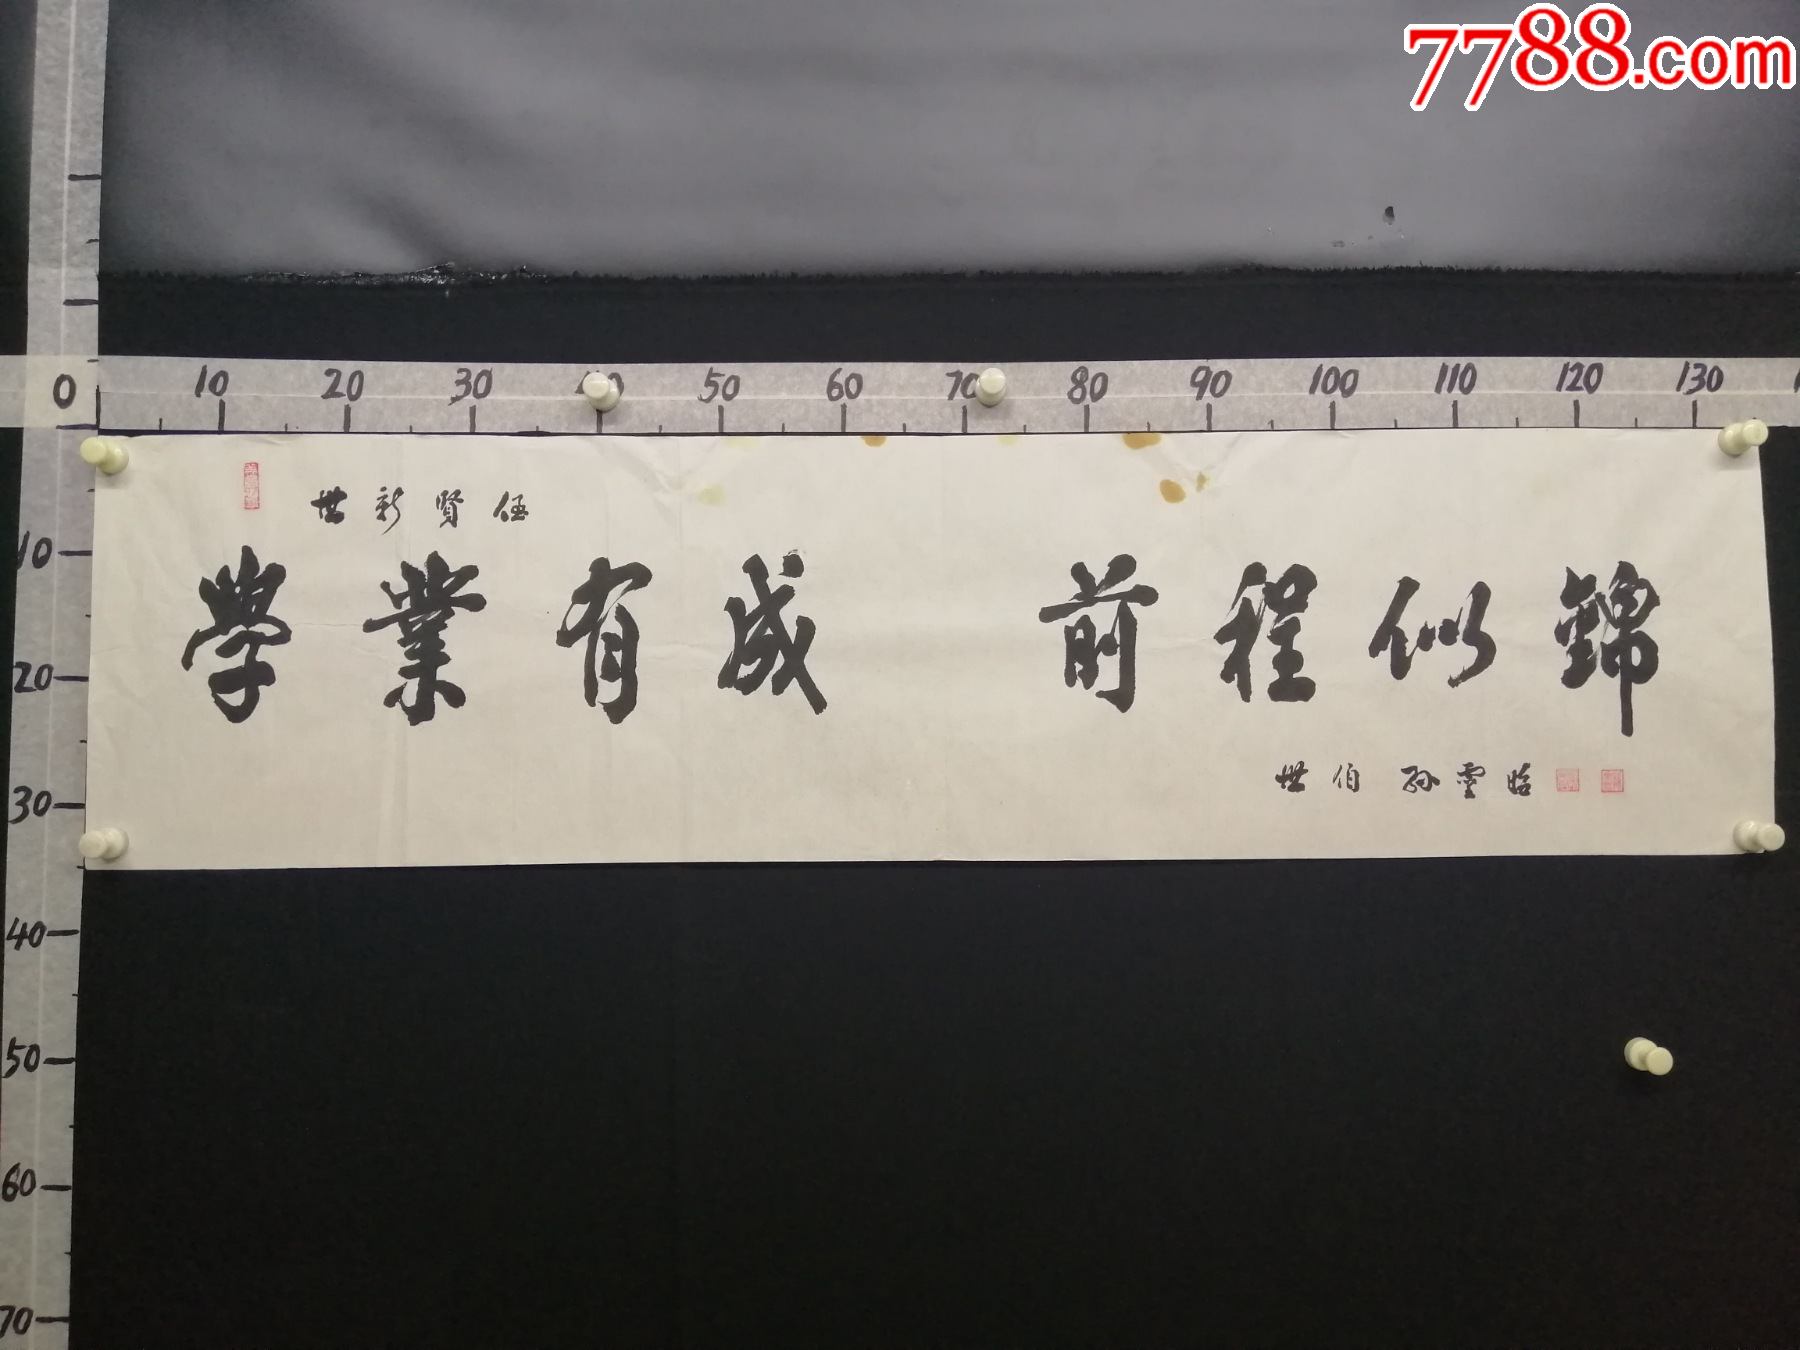 7788.com
0 10 20 30 40 50 60 70 80 90 100 110 120 130
世新賢侄
學業有成 前程似錦
世伯 孫雲皓
10
20
30
40
50
60
70